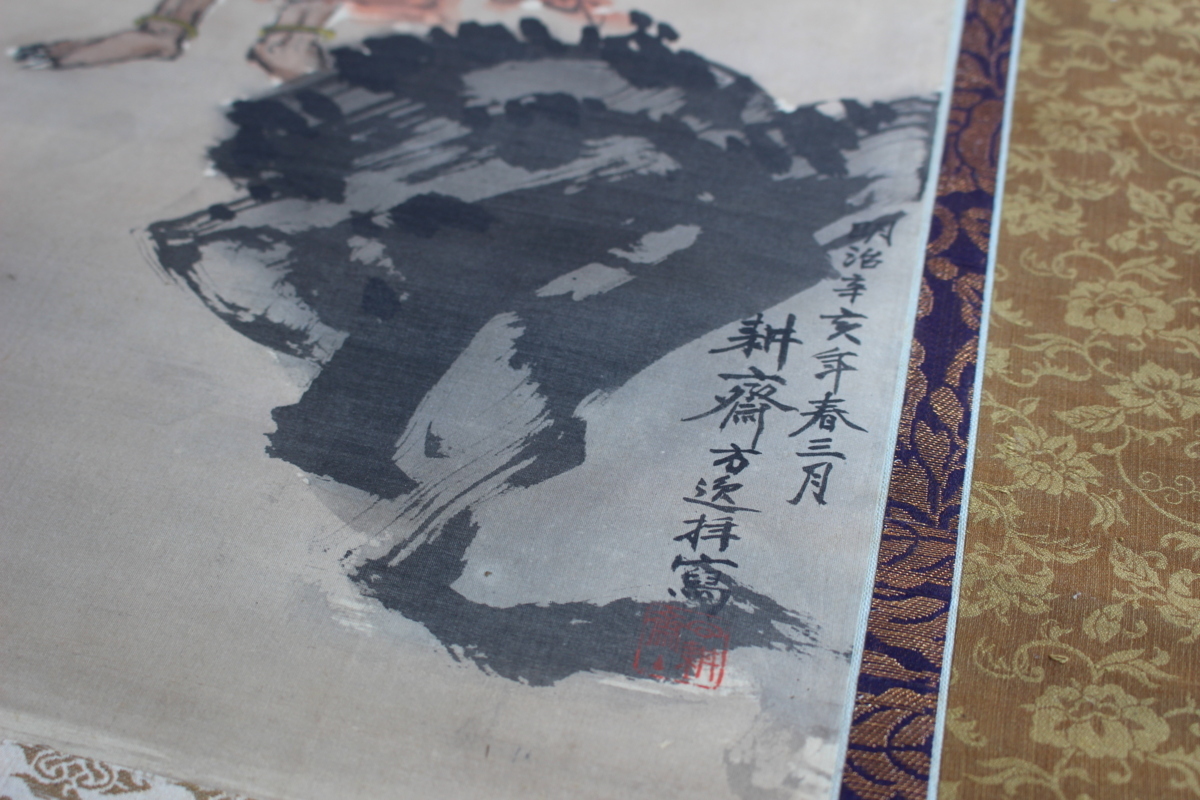 明治辛亥年春三月
耕齋方逸拝寫